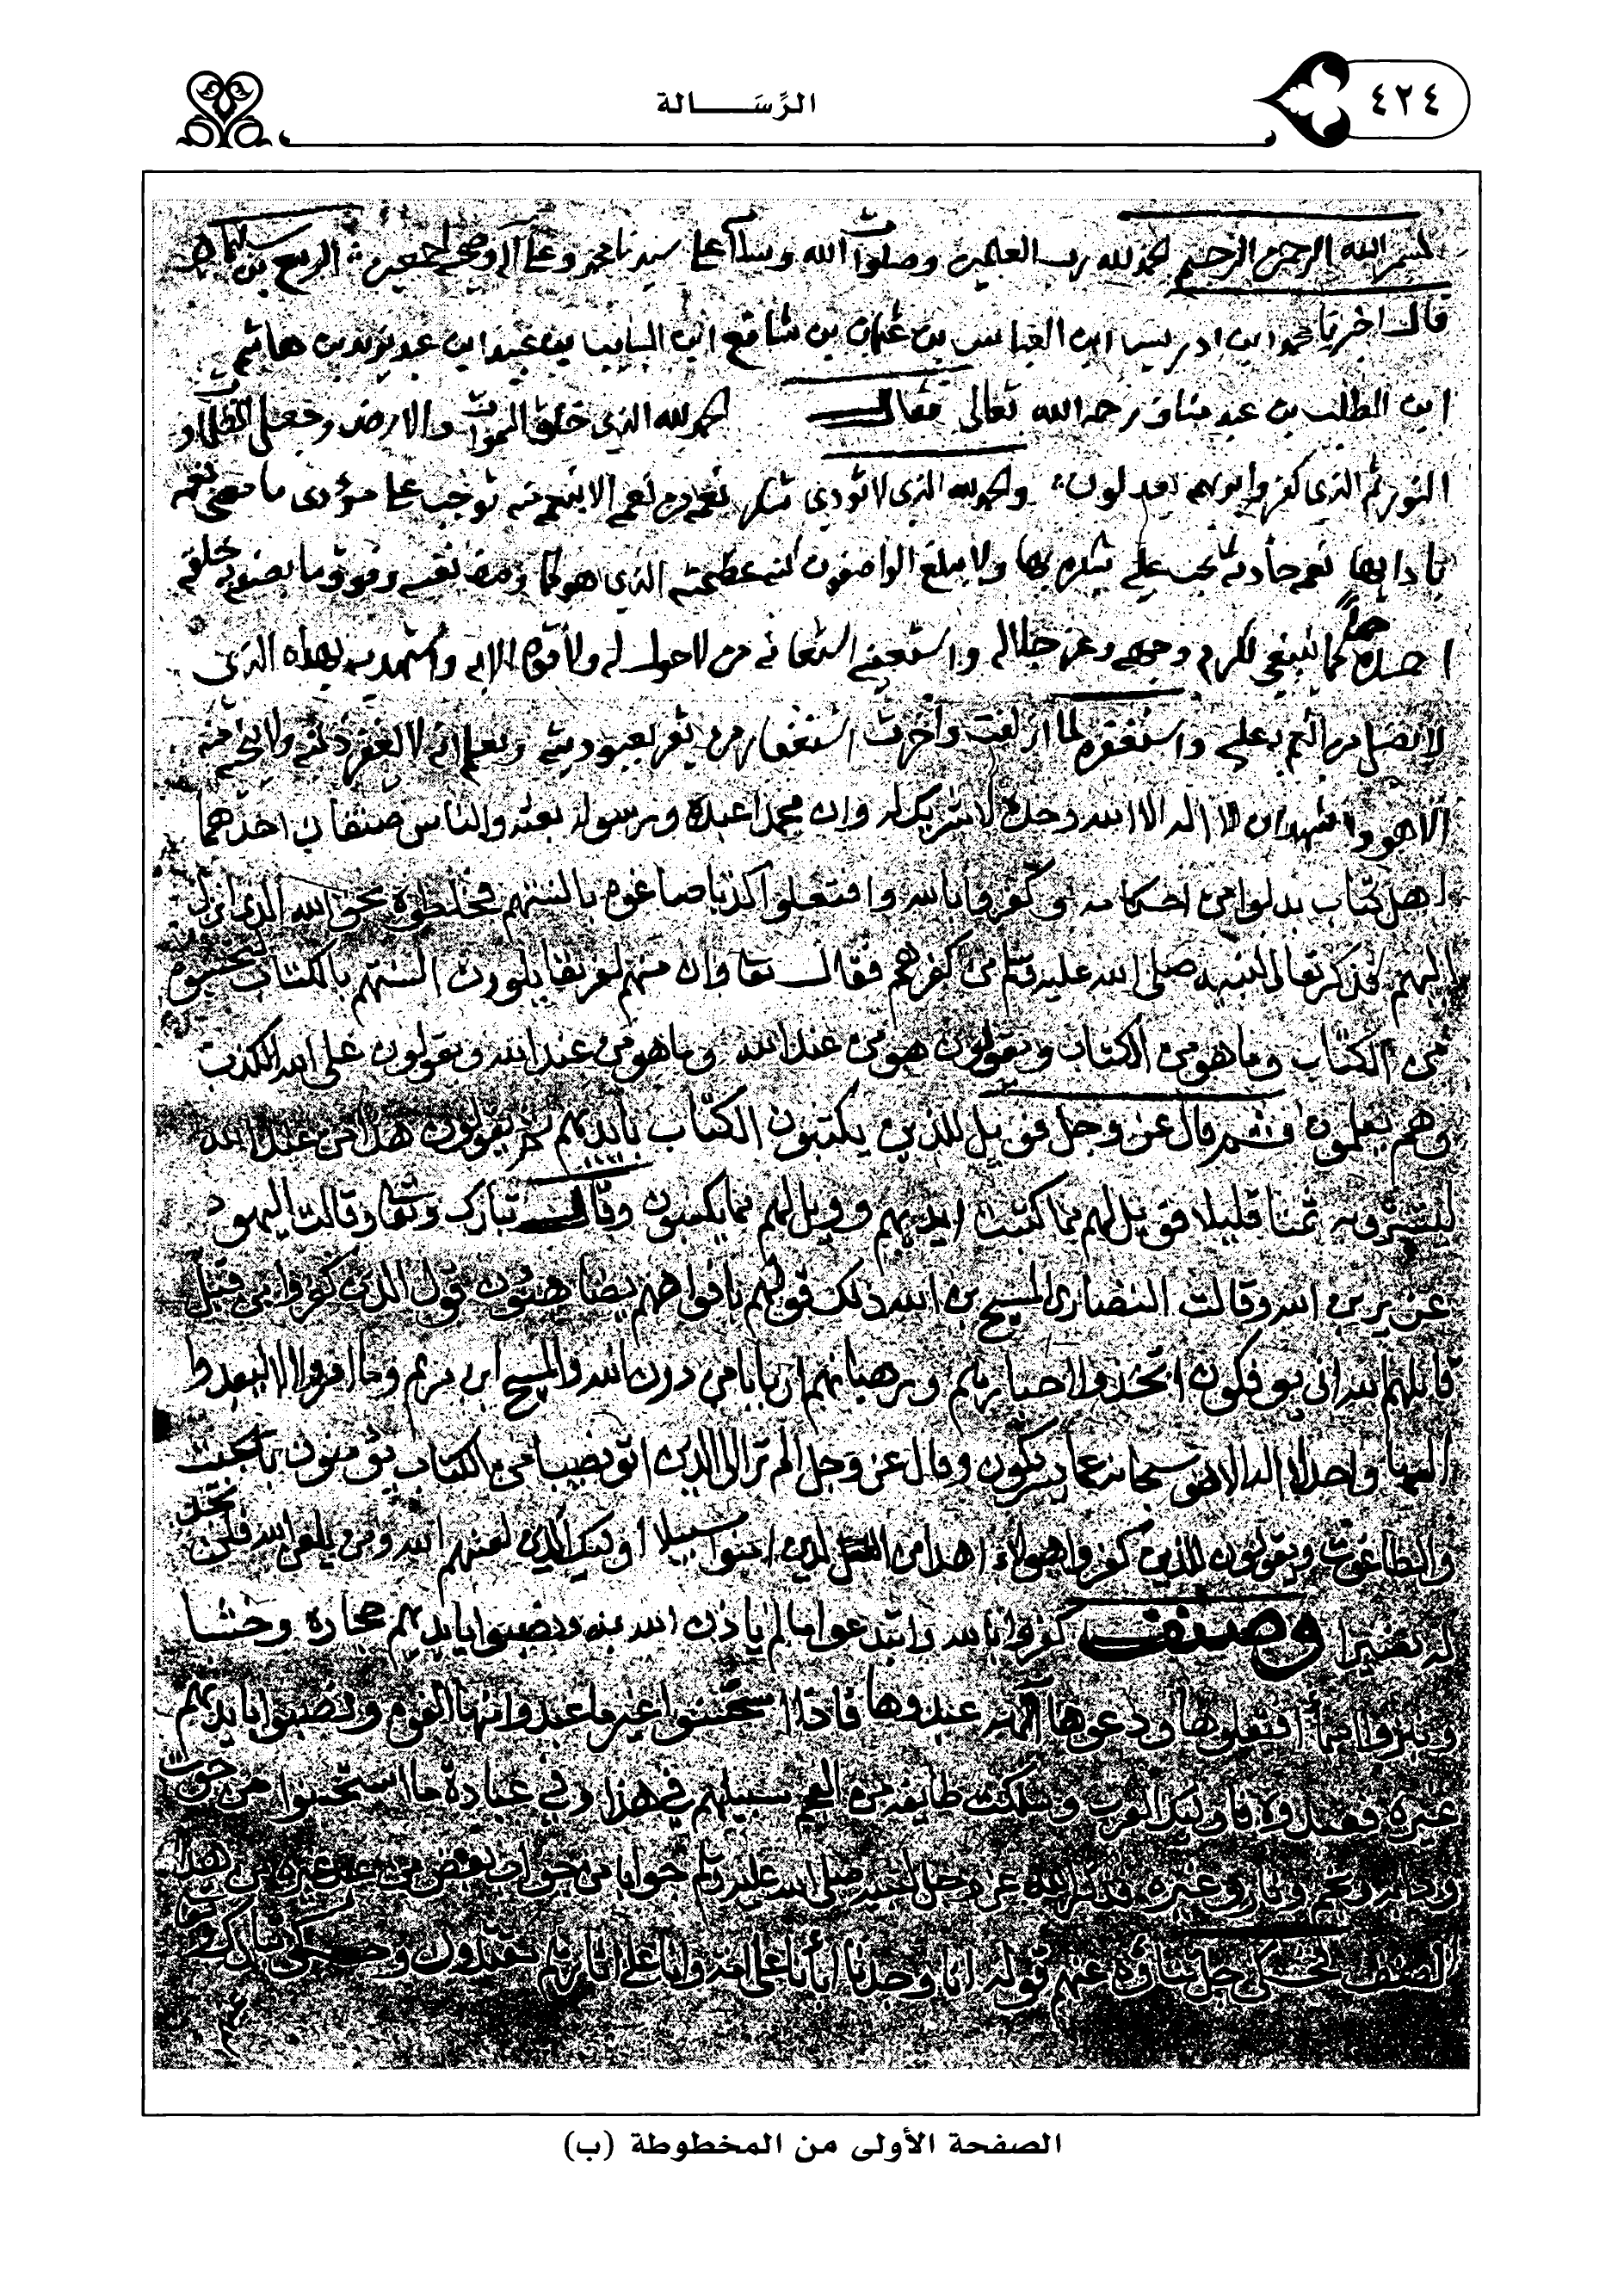 ٤٢٤
الرِّسَـــالة
بسم الله الرحمن الرحيم الحمد لله رب العلمين وصلوات الله وسلامه على سيدنا محمد وعلى آله وصحبه اجمعين الربيع بن سليمان
قال اخبرنا محمد ابن ادريس ابن العباس بن عثمان بن شافع ابن السايب بن عبيد ابن عبد يزيد بن هاشم
ابن المطلب بن عبد مناف رحمه الله تعالى فقال الحمد لله الذي خلق السموات والارض وجعل الظلمات و
النور ثم الذي كفروا بربهم يعدلون والحمد لله الذي لا تؤدى شكر نعمه من نعمه الا بنعمه منه توجب على مؤدى ما مضى نعمه
بادايها نعمه حادثه يجب عليه شكره بها ولا يبلغ الواصفون كنه عظمته الذي هو كما وصف نفسه وفوق ما يصفه به خلقه
احمده حمدا كما ينبغي لكرم وجهه وعز جلاله واستعينه استعانه من لا حول له ولا قوه الا به واستهديه بهداه الذي
لا يضل من انعم به عليه واستغفره لما ازلفت واخرت استغفار من يقر بعبوديته ويعلم انه لا يغفر ذنبه ولا ينجيه منه
الا هو واشهد ان لا اله الا الله وحده لا شريك له وان محمدا عبده ورسوله بعثه والناس صنفان احدهما
اهل كتاب بدلوا من احكامه وكفروا بالله وافتعلوا كذبا صاغوه بالسنتهم فخلطوه بحق الله الذي انزل
اليهم فذكر تعالى لنبيه صلى الله عليه وسلم من كفرهم فقال تعا وان منهم لفريقا يلوون السنتهم بالكتاب لتحسبوه
من الكتاب وما هو من الكتاب ويقولون هو من عند الله وما هو من عند الله ويقولون على الله الكذب
وهم يعلمون ثم قال عز وجل فويل للذين يكتبون الكتاب بايديهم ثم يقولون هذا من عند الله
ليشتروا به ثمنا قليلا فويل لهم مما كتبت ايديهم وويل لهم مما يكسبون وقال تبارك وتعا وقالت اليهود
عزير بن الله وقالت النصارى المسيح بن الله ذلك قولهم بافواههم يضاهئون قول الذين كفروا من قبل
قاتلهم الله انى يوفكون اتخذوا احبارهم ورهبانهم اربابا من دون الله والمسيح ابن مريم وما امروا الا ليعبدوا
الها واحدا لا اله الا هو سبحانه عما يشركون وقال عز وجل الم تر الى الذين اتو نصيبا من الكتاب يؤمنون بالجبت
والطاغوت ويقولون للذين كفروا هولاء اهدا من الذين امنوا سبيلا اوليك الذين لعنهم الله ومن يلعن الله فلن تجد
له نصيرا وصنف كفروا بالله وابتدعوا ما لم ياذن الله به ونصبوا بايديهم حجارة وخشبا
افتعلوها ودعوها آلهه عبدوها فاذا استحسنوا غير ما عبدوا منها القوه ونصبوا بايديهم
غيره فعبدوه فاوليك العرب وسلكت طايفه من العجم سبيلهم في هذا وفي عبادة ما استحسنوا من حوت
ودابه ونجم ونار وغيره فذكر الله عز وجل لنبيه صلى الله عليه وسلم جوابا من جواب بعض من عبد غيره من هذا
الصنف فحكى جل ثناؤه عنهم قوله انا وجدنا اباءنا على امه وانا على اثارهم مقتدون وحكى تبارك وتعا
الصفحة الأولى من المخطوطة (ب)